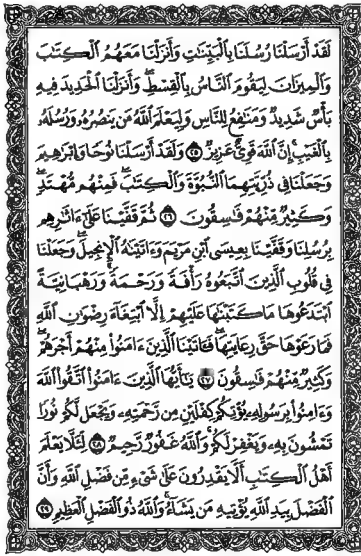 لَقَدْ أَرْسَلْنَا رُسُلَنَا بِالْبَيِّنَٰتِ وَأَنزَلْنَا مَعَهُمُ الْكِتَٰبَ
وَالْمِيزَانَ لِيَقُومَ النَّاسُ بِالْقِسْطِ ۖ وَأَنزَلْنَا الْحَدِيدَ فِيهِ
بَأْسٌ شَدِيدٌ وَمَنَٰفِعُ لِلنَّاسِ وَلِيَعْلَمَ اللَّهُ مَن يَنصُرُهُۥ وَرُسُلَهُۥ
بِالْغَيْبِ ۚ إِنَّ اللَّهَ قَوِىٌّ عَزِيزٌ ٢٥ وَلَقَدْ أَرْسَلْنَا نُوحًا وَإِبْرَٰهِيمَ
وَجَعَلْنَا فِى ذُرِّيَّتِهِمَا النُّبُوَّةَ وَالْكِتَٰبَ ۖ فَمِنْهُم مُّهْتَدٍ ۖ
وَكَثِيرٌ مِّنْهُمْ فَٰسِقُونَ ٢٦ ثُمَّ قَفَّيْنَا عَلَىٰٓ ءَاثَٰرِهِم
بِرُسُلِنَا وَقَفَّيْنَا بِعِيسَى ابْنِ مَرْيَمَ وَءَاتَيْنَٰهُ الْإِنجِيلَ ۖ وَجَعَلْنَا
فِى قُلُوبِ الَّذِينَ اتَّبَعُوهُ رَأْفَةً وَرَحْمَةً ۚ وَرَهْبَانِيَّةً
ابْتَدَعُوهَا مَا كَتَبْنَٰهَا عَلَيْهِمْ إِلَّا ابْتِغَآءَ رِضْوَٰنِ اللَّهِ
فَمَا رَعَوْهَا حَقَّ رِعَايَتِهَا ۖ فَـَٔاتَيْنَا الَّذِينَ ءَامَنُوا مِنْهُمْ أَجْرَهُمْ ۖ
وَكَثِيرٌ مِّنْهُمْ فَٰسِقُونَ ٢٧ يَٰٓأَيُّهَا الَّذِينَ ءَامَنُوا اتَّقُوا اللَّهَ
وَءَامِنُوا بِرَسُولِهِۦ يُؤْتِكُمْ كِفْلَيْنِ مِن رَّحْمَتِهِۦ وَيَجْعَل لَّكُمْ نُورًا
تَمْشُونَ بِهِۦ وَيَغْفِرْ لَكُمْ ۚ وَاللَّهُ غَفُورٌ رَّحِيمٌ ٢٨ لِّئَلَّا يَعْلَمَ
أَهْلُ الْكِتَٰبِ أَلَّا يَقْدِرُونَ عَلَىٰ شَىْءٍ مِّن فَضْلِ اللَّهِ ۙ وَأَنَّ
الْفَضْلَ بِيَدِ اللَّهِ يُؤْتِيهِ مَن يَشَآءُ ۚ وَاللَّهُ ذُو الْفَضْلِ الْعَظِيمِ ٢٩